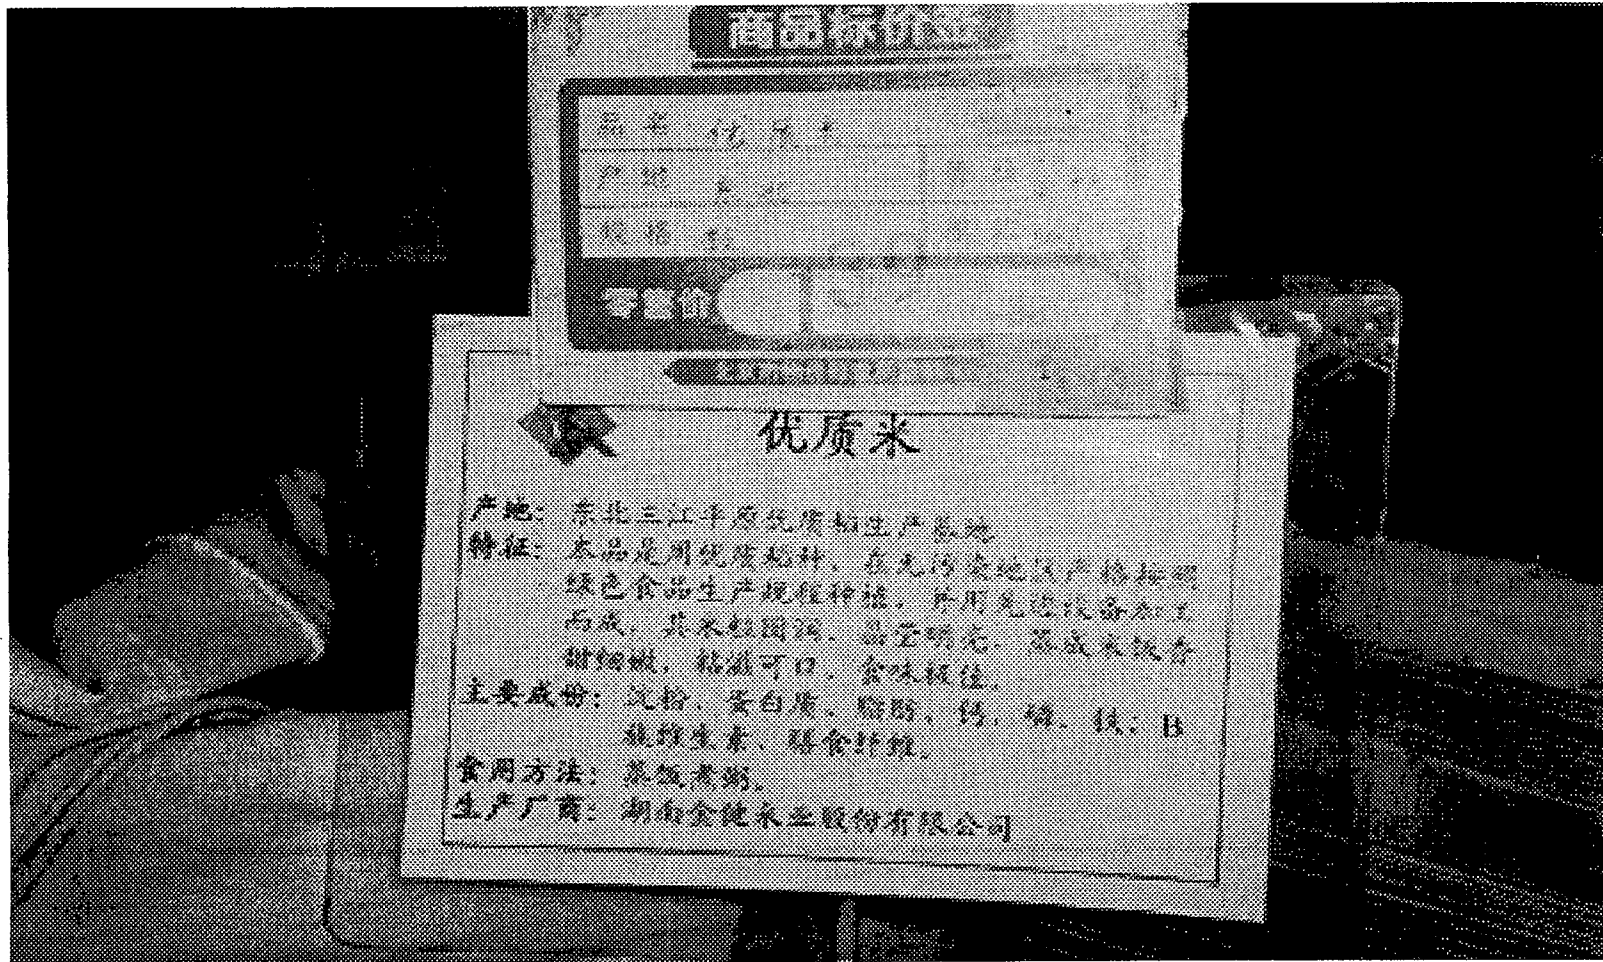 商品标价签
品名 优质米
产地 东北
规格
零售价
优质米
产地：东北三江平原优质稻生产基地
特征：本品是用优质稻种，在无污染地区严格按照
绿色食品生产规程种植，并用先进设备加工
而成，其米粒圆润、晶莹明亮、蒸成米饭香
甜细嫩，粘滋可口、食味极佳。
主要成份：淀粉、蛋白质、脂肪、钙、磷、铁；B
族维生素、膳食纤维。
食用方法：蒸饭煮粥。
生产厂商：湖南金健米业股份有限公司